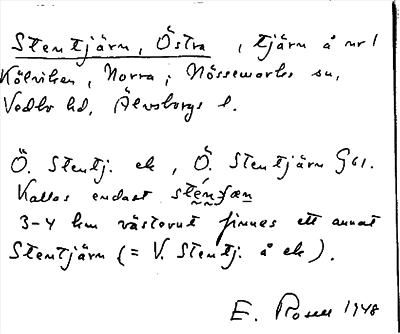 Stentjärn, Östra, tjärn å nr 1
Kölviken, Norra; Nössemarks sn,
Vedbo hd, Älvsborgs l.
Ö. Stentj. ek, Ö. Stentjärn G 61.
Kallas endast
3-4 km västerut finnes ett annat
Stentjärn (= V. Stentj. å ek).
E. Rosell 1948